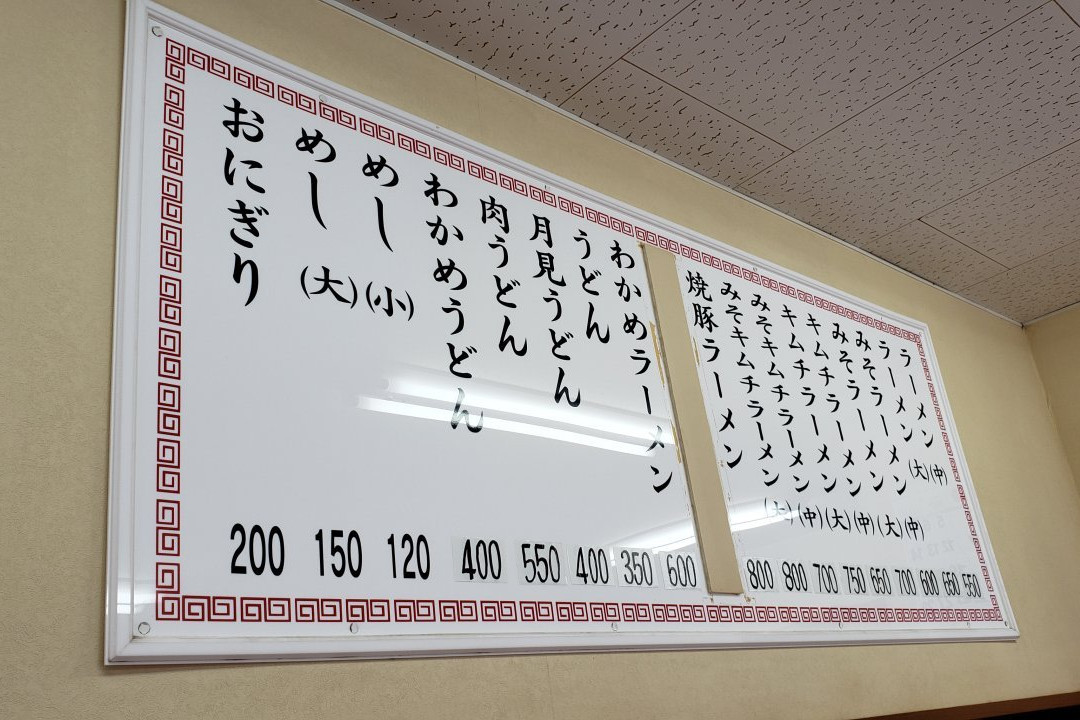 ラーメン(中) 550
ラーメン(大) 650
みそラーメン(中) 600
みそラーメン(大) 700
キムチラーメン(中) 650
キムチラーメン(大) 750
みそキムチラーメン(中) 700
みそキムチラーメン(大) 800
焼豚ラーメン 800
わかめラーメン 600
うどん 350
月見うどん 400
肉うどん 550
わかめうどん 400
めし(小) 120
めし(大) 150
おにぎり 200